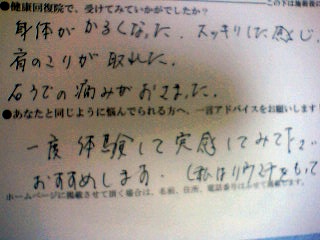 この下は施術後に
●健康回復院で、受けてみていかがでしたか?
身体がかるくなった。スッキリした感じ.
肩のこりが取れた.
右うでの痛みがおさまった.
●あなたと同じように悩んでられる方へ、一言アドバイスをお願いします
一度 体験して 実感してみて下さい
おすすめします. (私はリウマチをもって
ホームページに掲載させて頂く場合は、名前、住所、電話番号はふせて掲載します。